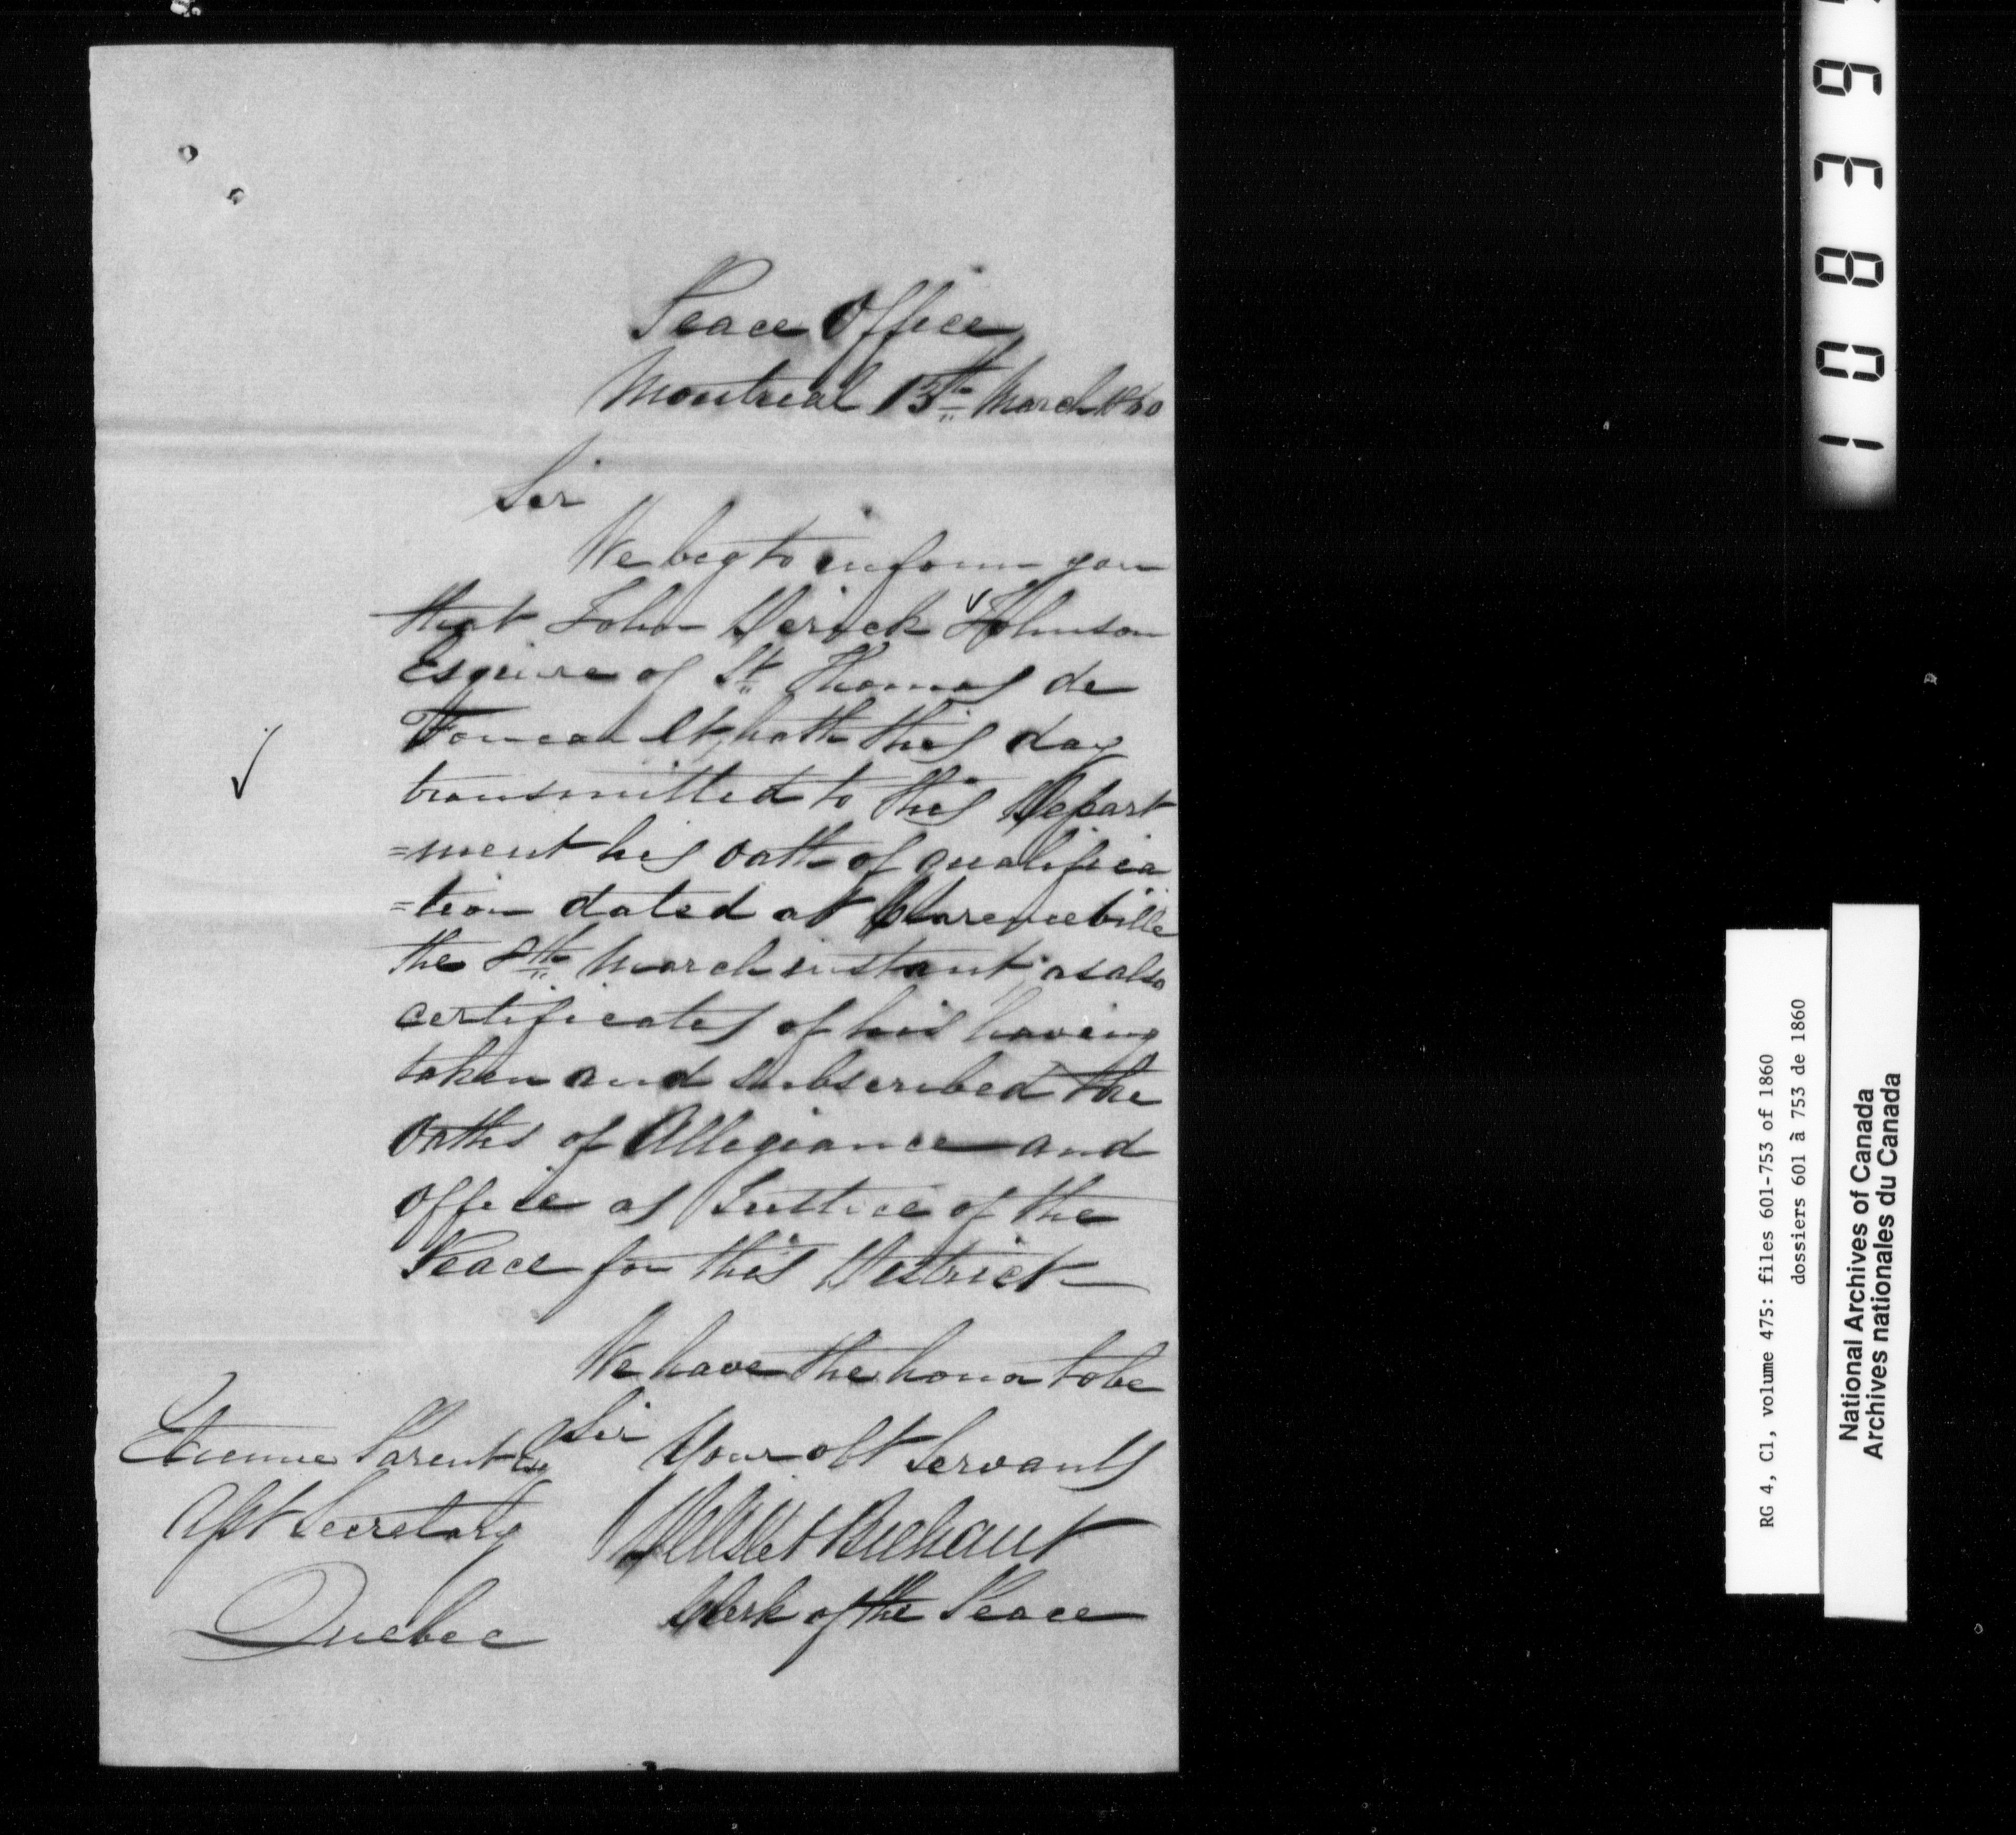 Peace Office
Montreal 13th March 1860
Sir
We beg to inform you
that John Derick Johnson
Esquire of St Thomas de
Foucault, hath this day
transmitted to this Depart
=ment his oath of qualifica
=tion dated at Clarenceville
the 8th March instant, as also
certificates of his having
taken and subscribed the
oaths of Allegiance and
office as Justice of the
Peace for this District
We have the honor to be
Sir Your obt Servants
Etienne Parent Esq
Asst Secretary
Quebec
Delisle & Brehaut
Clerk of the Peace
1 0 8 3 9
RG 4, C1, volume 475: files 601-753 of 1860
dossiers 601 à 753 de 1860
National Archives of Canada
Archives nationales du Canada